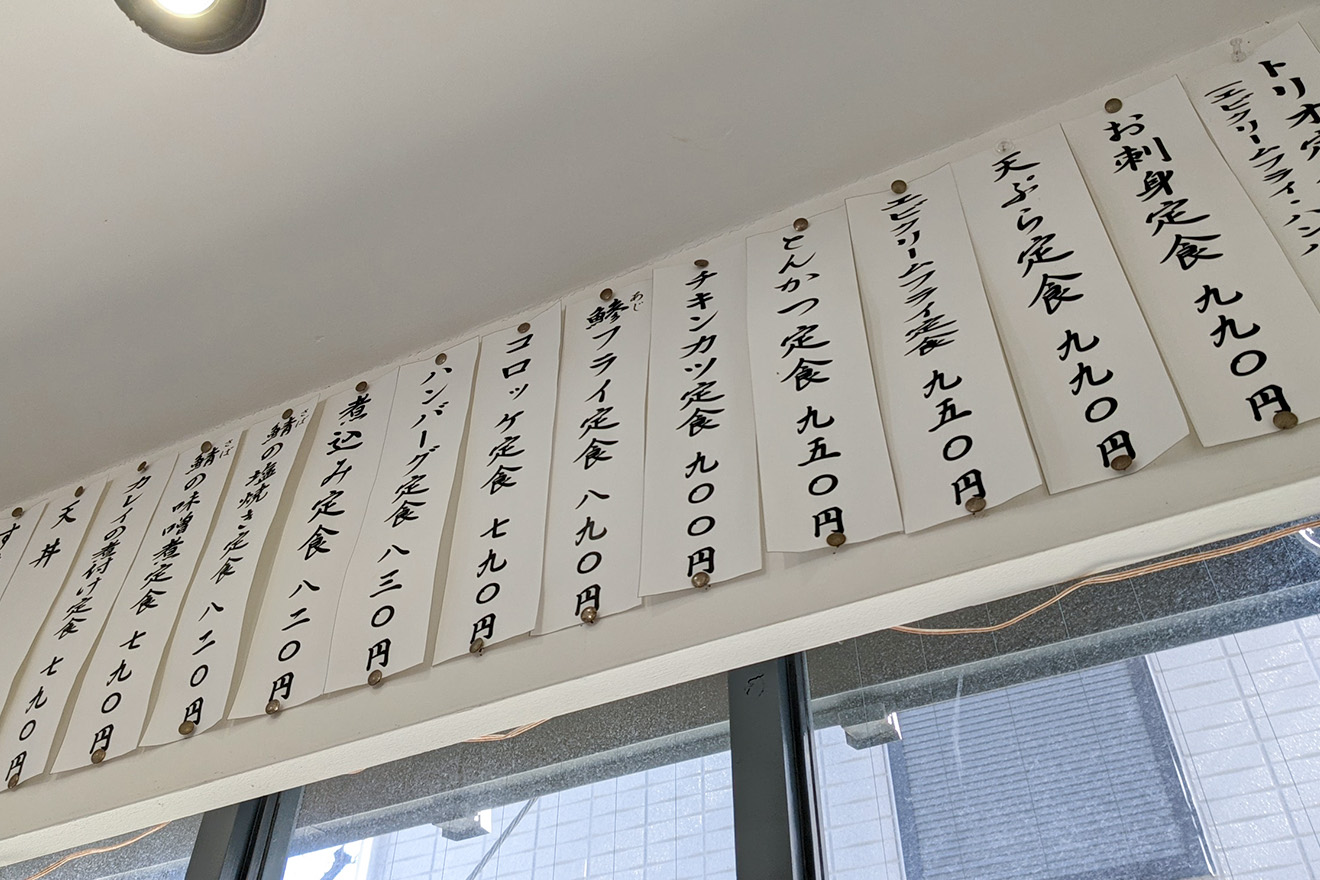 トリオ定
エビクリームフライ・ハン
お刺身定食 九九〇円
天ぷら定食 九九〇円
エビクリームフライ定食 九五〇円
とんかつ定食 九五〇円
チキンカツ定食 九〇〇円
鯵フライ定食 八九〇円
あじ
コロッケ定食 七九〇円
ハンバーグ定食 八三〇円
煮込み定食 八二〇円
鯖の塩焼き定食 八二〇円
さば
鯖の味噌煮定食 七九〇円
さば
カレイの煮付け定食 七九〇円
天丼
す